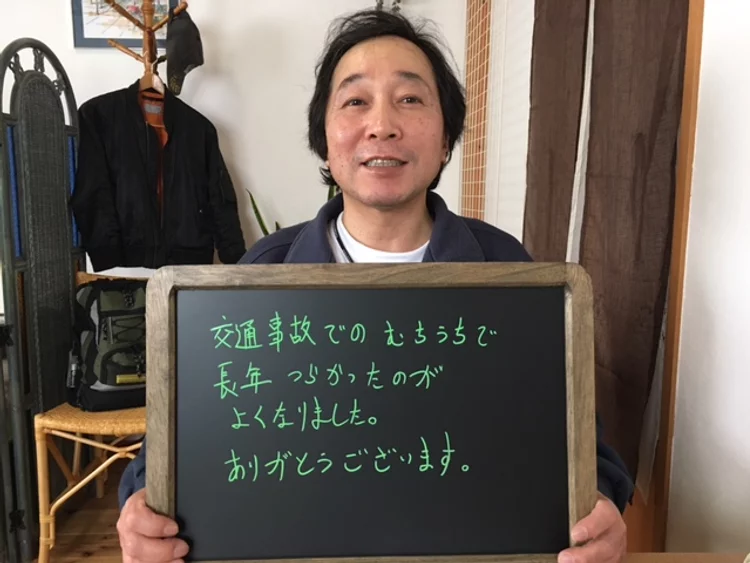 交通事故での むちうちで
長年 つらかったのが
よくなりました。
ありがとうございます。